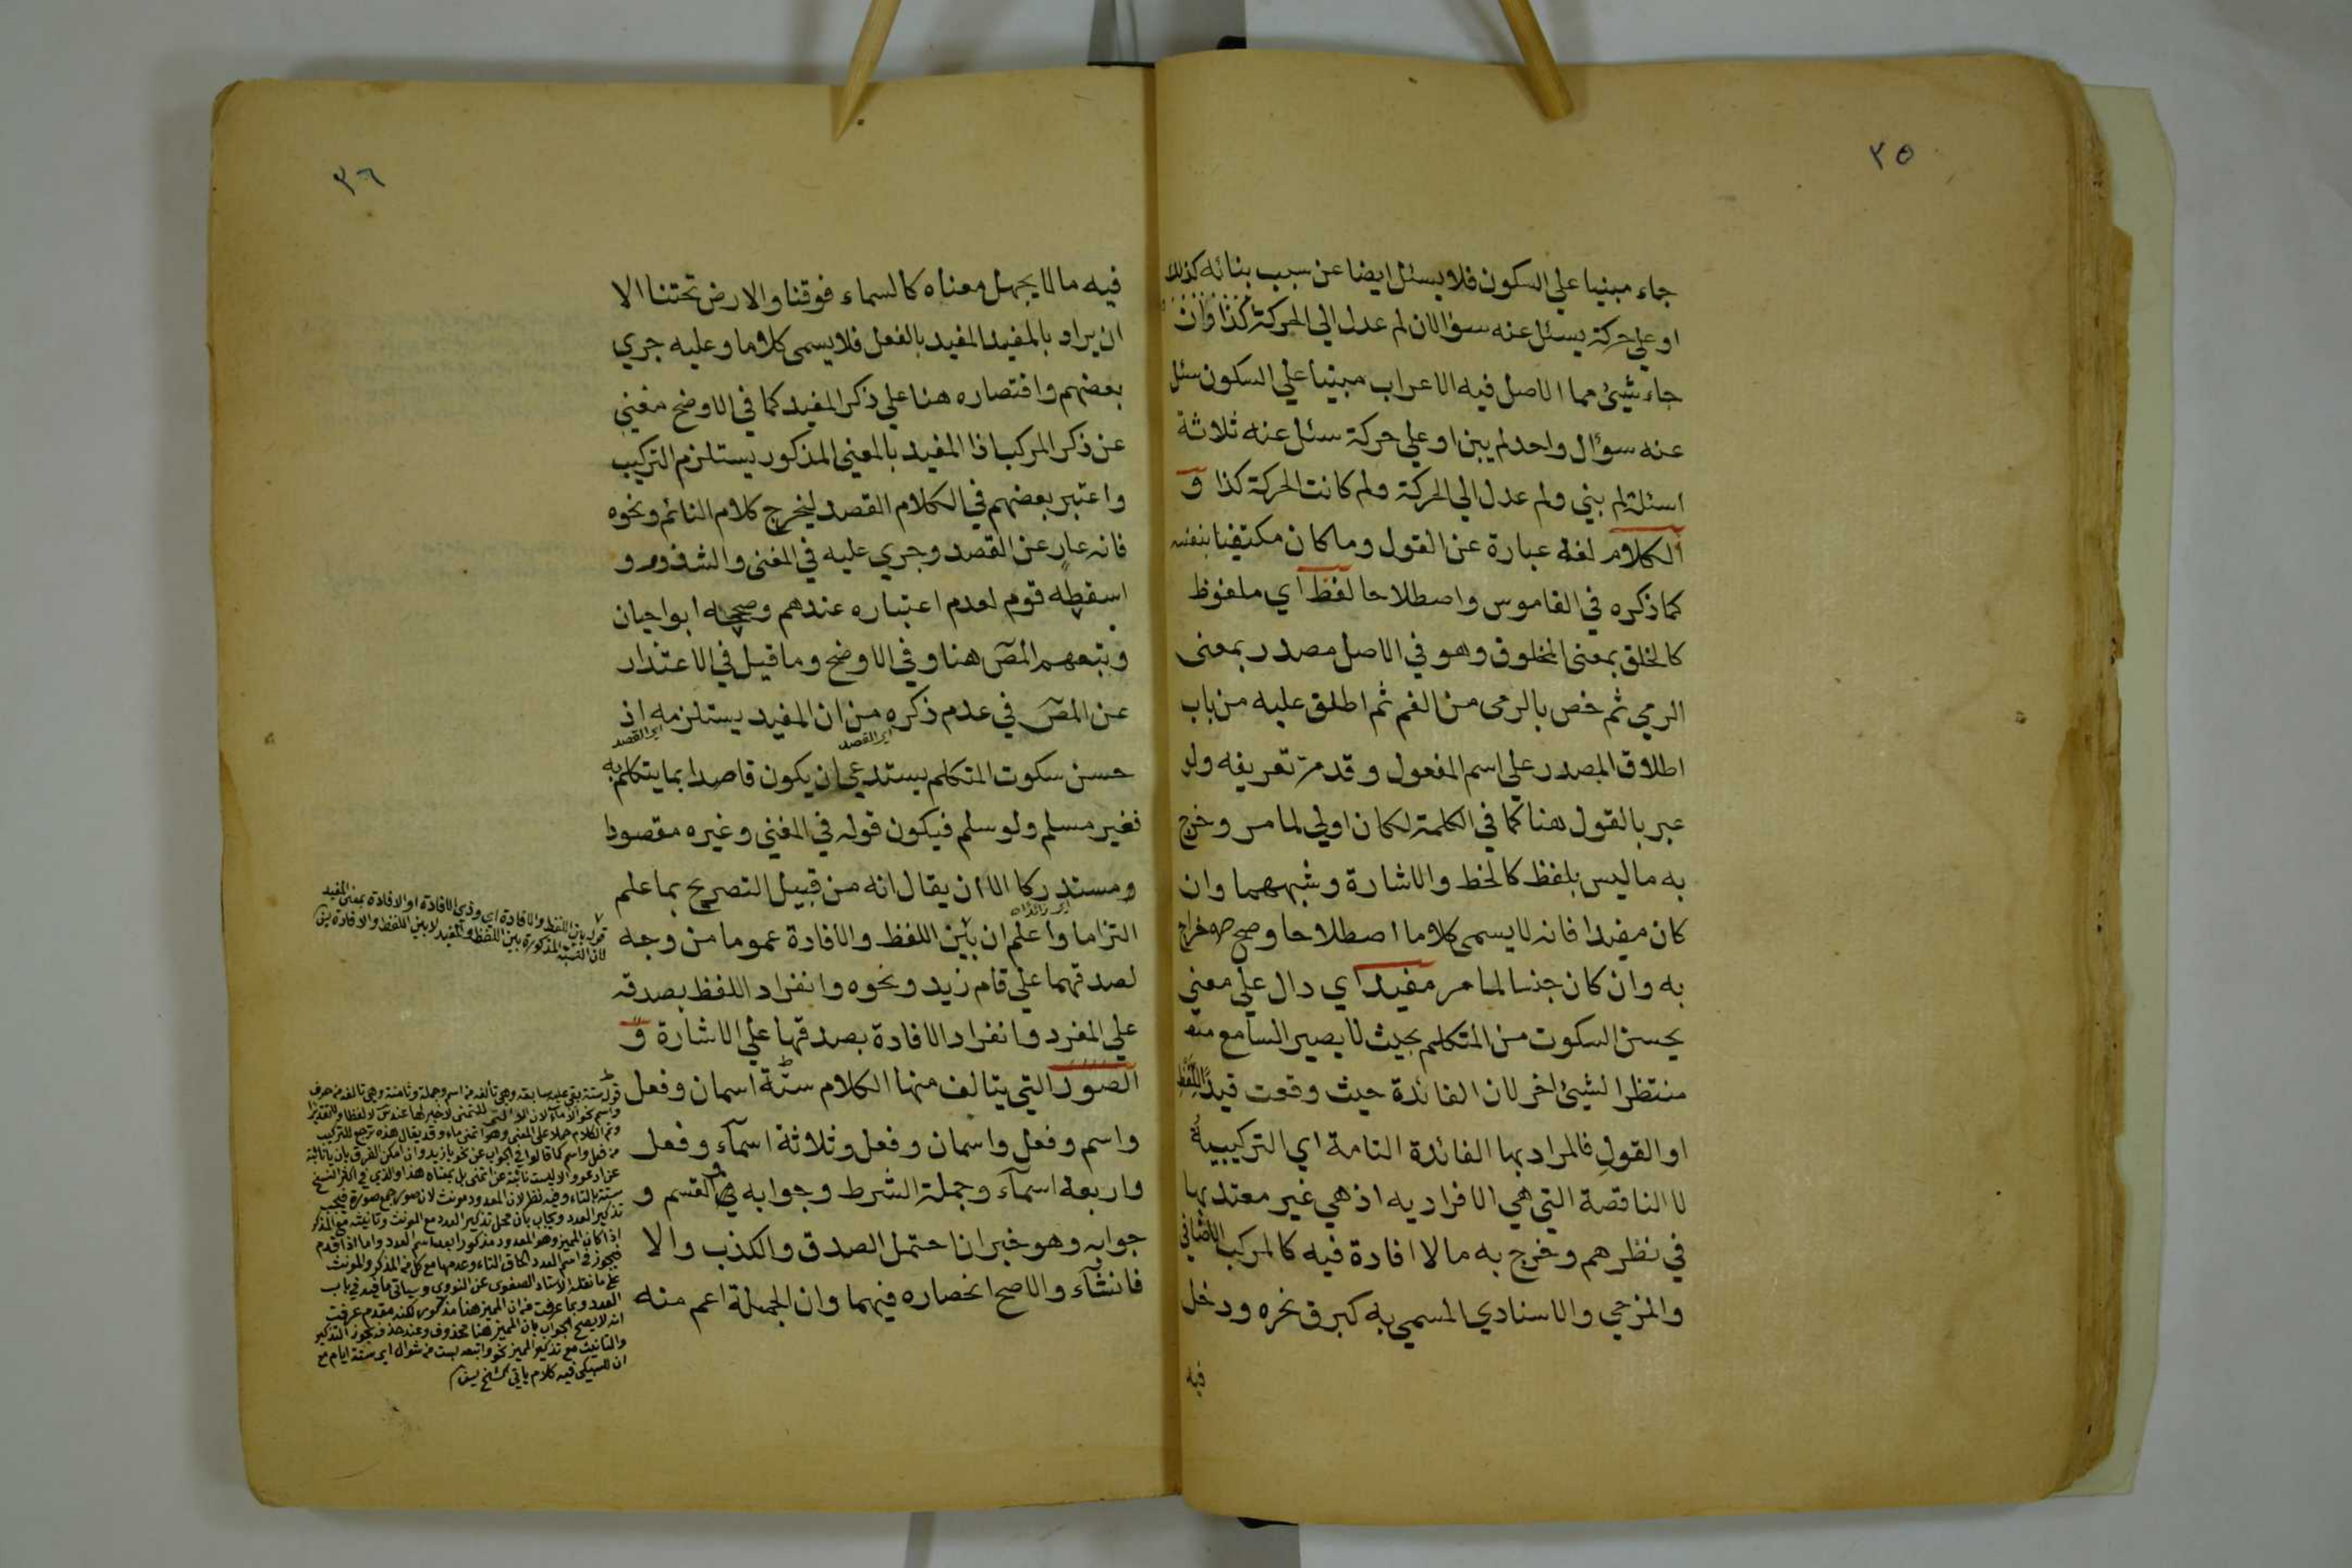 ٣٥
جاء مبنيا علي السكون فلا يسئل ايضا عن سبب بنائه كذلك
او علي حركة يسئل عنه سؤالان لم عدل الي الحركة كذا وان
جاء شيئ مما الاصل فيه الاعراب مبنيا علي السكون سئل
عنه سؤال واحد لم بين او علي حركة سئل عنه ثلاثة
اسئلة لم بني ولم عدل الي الحركة ولم كانت الحركة كذا و
الكلام لغة عبارة عن القول وما كان مكتفيا بنفسه
كما ذكره في القاموس واصطلاحا لفظ اي ملفوظ
كالخلق بمعنى المخلوق وهو في الاصل مصدر بمعنى
الرمي ثم خص بالرمى من الفم ثم اطلق عليه من باب
اطلاق المصدر علي اسم المفعول وقد مر تعريفه ولو
عبر بالقول هنا كما في الكلمة لكان اولي لما مر وخرج
به ما ليس بلفظ كالخط والاشارة وشبههما وان
كان مفيدا فانه لا يسمى كلاما اصطلاحا وصح اخراج
به وان كان جنسا لما مر مفيد اي دال علي معني
يحسن السكوت من المتكلم بحيث لا يصير السامع معه
منتظرا لشيئ اخر لان الفائدة حيث وقعت قيد اللفظ
او القول فالمراد بها الفائدة التامة اي التركيبية
لا الناقصة التي هي الافراديه اذ هي غير معتد بها
في نظرهم وخرج به ما لا افادة فيه كالمركب الاضافي
والمزجي والاسنادي المسمي به كبرق نحره ودخل
فيه
٣٦
فيه ما لا يجهل معناه كالسماء فوقنا والارض تحتنا الا
ان يراد بالمفيد المفيد بالفعل فلا يسمى كلاما وعليه جري
بعضهم واقتصاره هنا علي ذكر المفيد كما في الاوضح مغني
عن ذكر المركب اذا المفيد بالمعني المذكور يستلزم التركيب
واعتبر بعضهم في الكلام القصد ليخرج كلام النائم ونحوه
فانه عار عن القصد وجري عليه في المغنى والشذور و
اسقطه قوم لعدم اعتباره عندهم وصححه ابوا حيان
وتبعهم المص هنا وفي الاوضح وما قيل في الاعتذار
عن المص في عدم ذكره من ان المفيد يستلزمه اذ
اي القصد
اي القصد
حسن سكوت المتكلم يستدعي ان يكون قاصدا بما يتكلم به
فغير مسلم ولو سلم فيكون قوله في المغني وغيره مقصودا
ومستدركا الا ان يقال انه من قبيل التصريح بما علم
اي زائدا
التزاما واعلم ان بين اللفظ والافادة عموما من وجه
لصدقهما علي قام زيد ونحوه وانفراد اللفظ بصدقه
علي المفرد وانفراد الافادة بصدقها علي الاشارة و
الصور التي يتالف منها الكلام ستة اسمان وفعل
واسم وفعل واسمان وفعل وثلاثة اسماء وفعل
واربعة اسماء وجملة الشرط وجوابه والقسم و
جوابه وهو خبر ان احتمل الصدق والكذب والا
فانشاء والاصح انحصاره فيهما وان الجملة اعم منه
قوله بين اللفظ والافادة اي وذي الافادة او الافادة بمعنى المفيد
لان النسبة المذكورة بين اللفظ والمفيد لا بين اللفظ والافادة
قوله ستة بقي عليه سابعة وهي تألفه من اسم وجملة وثامنة وهي تألفه من حرف
واسم نحو الا ماء لان الا التي للتمني لا خبر لها عند س لا لفظا ولا تقديرا
وتم الكلام حملا على المعنى وهو اتمنى ماء وقد يقال هذه ترجع للتركيب
من فعل واسم كما قالوا في الجواب عن نحو يا زيد وان امكن الفرق بان يا نائبة
عن ادعو والا ليست نائبة عن اتمنى بل بمعناه هذا والذي في اكثر النسخ
ستة بالتاء وفيه نظر لان المعدود مونث لان صور جمع صورة فيجب
تذكير العدد ويجاب بان محل تذكير العدد مع المونث وتانيثه مع المذكر
اذا كان المميز وهو المعدود مذكورا بعد اسم العدد واما اذا قدم
فيجوز في اسم العدد الحاق التاء وعدمها مع كل من المذكر والمونث
على ما نقله الاستاذ الصفوى عن النووي وسياتي ما فيه في باب
العدد وبما عرفت من ان المميز هنا مذكور لكنه مقدم عرفت
انه لا يصح الجواب بان المميز هنا محذوف وعند حذفه يجوز التذكير
والتانيث مع تذكير المميز نحو واتبعه بست من شوال اي ستة ايام مع
ان للسبكي فيه كلام ياتي